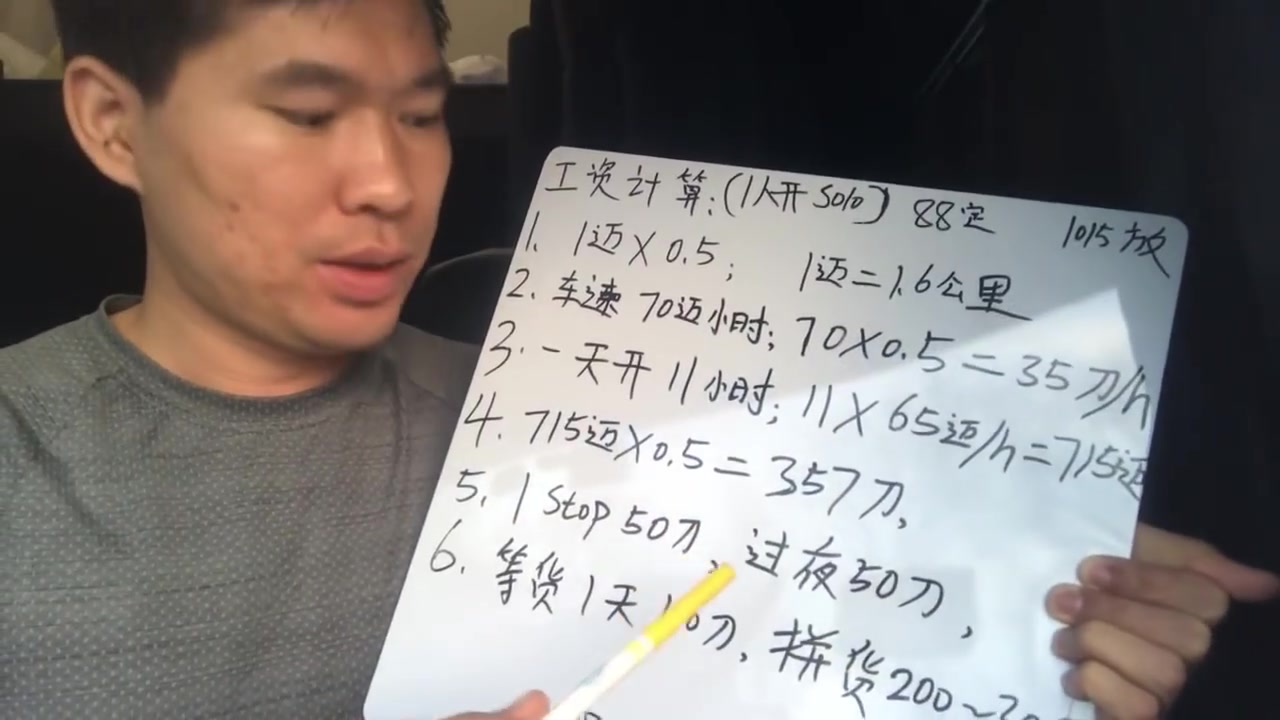 工资计算:(1人开 Solo) 88定 1015放
1. 1迈×0.5; 1迈=1.6公里
2. 车速 70迈小时; 70×0.5=35刀/h
3. 一天开 11小时; 11×65迈/h=715迈
4. 715迈×0.5=357刀,
5. 1 Stop 50刀, 过夜50刀,
6. 等货1天 刀, 拼货200~